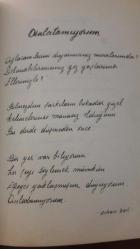 Anlatamıyorum
Ağlasam sesimi duyarmısınız mısralarımda?
Dokunabilirmisiniz göz yaşlarıma
Ellerinizle?
Bilmezdim şarkıların bu kadar güzel
Kelimelerinse manasız olduğunu
Bu derde düşmeden önce
Bir yer var biliyorum
Her şeyi söylemek mümkün
Epeyce yaklaşmışım duyuyorum
Anlatamıyorum.